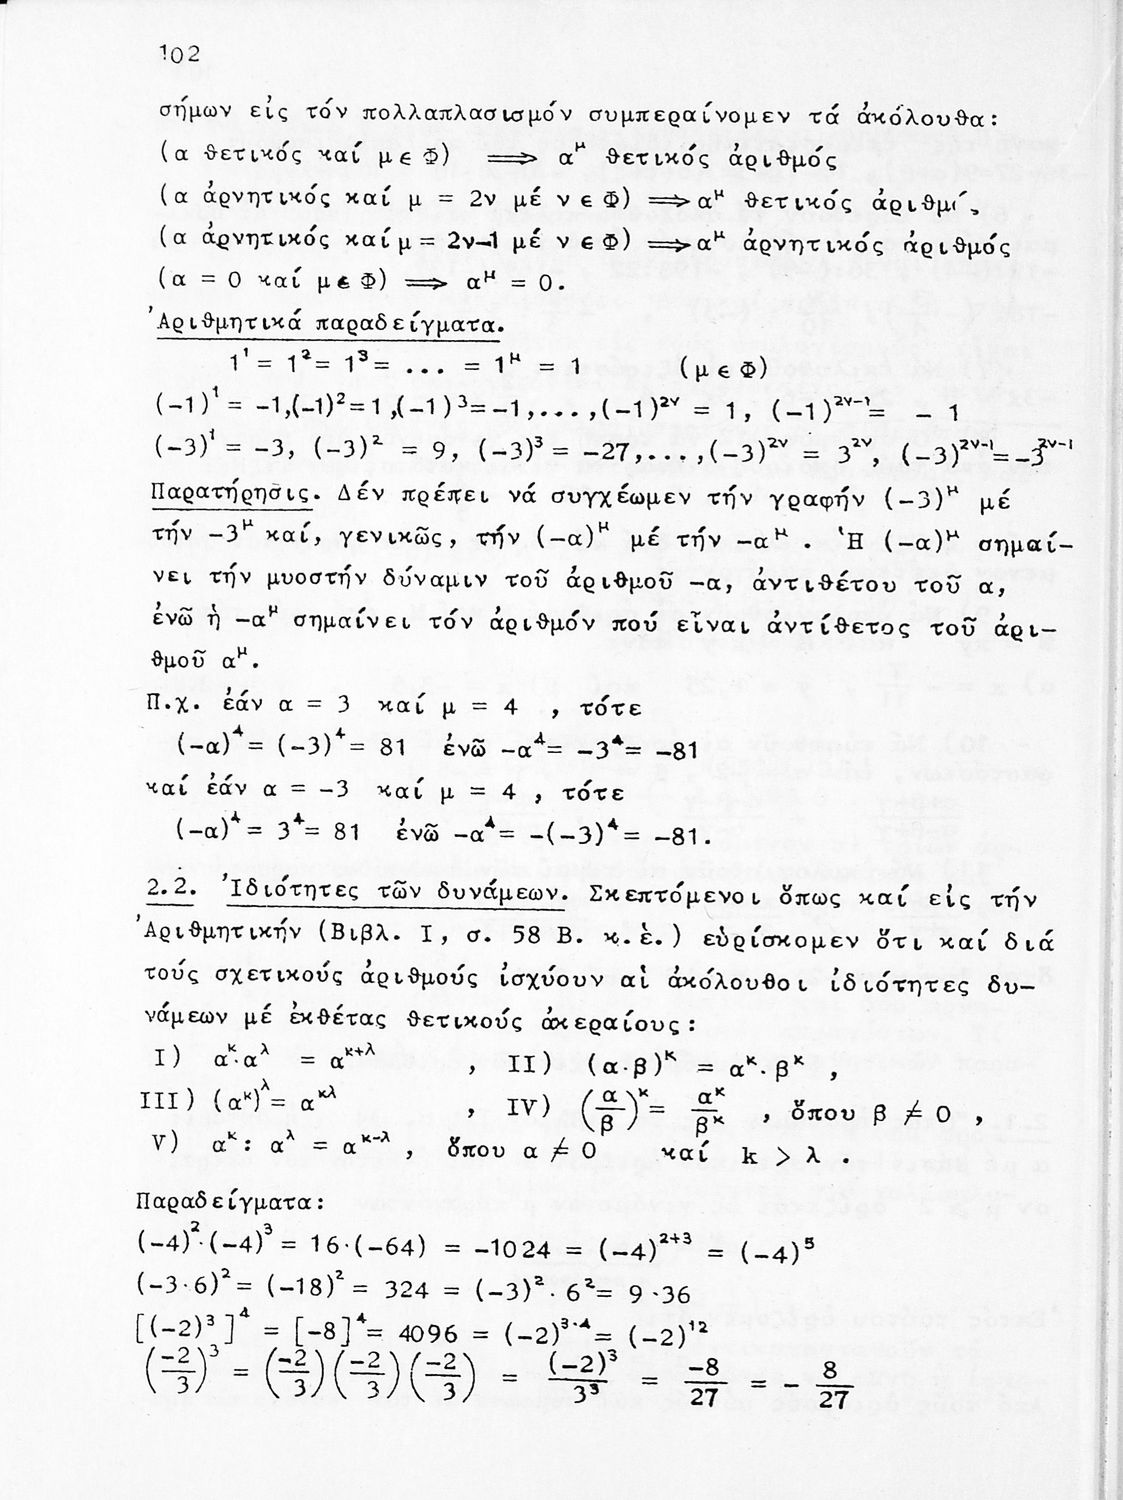 102
σήμων εἰς τόν πολλαπλασισμόν συμπεραίνομεν τά ἀκόλουθα:
(α θετικός καί μ ∈ Φ) ⟹ α^μ θετικός ἀριθμός
(α ἀρνητικός καί μ = 2ν μέ ν ∈ Φ) ⟹ α^μ θετικός
(α ἀρνητικός καί μ = 2ν-1 μέ ν ∈ Φ) ⟹ α^μ ἀρνητικός ἀριθμός
(α = 0 καί μ ∈ Φ) ⟹ α^μ = 0.
Ἀριθμητικά παραδείγματα.
1^1 = 1^2 = 1^3 = ... = 1^μ = 1 (μ ∈ Φ)
(-1)^1 = -1,(-1)^2=1,(-1)^3=-1,...,(-1)^2ν = 1, (-1)^2ν-1 = - 1
(-3)^1 = -3, (-3)^2 = 9, (-3)^3 = -27,...,(-3)^2ν = 3^2ν, (-3)^2ν-1 = -3^2ν-1
Παρατήρησις. Δέν πρέπει νά συγχέωμεν τήν γραφήν (-3)^μ μέ
τήν -3^μ καί, γενικῶς, τήν (-α)^μ μέ τήν -α^μ. Ἡ (-α)^μ σημαί-
νει τήν μυοστήν δύναμιν τοῦ ἀριθμοῦ -α, ἀντιθέτου τοῦ α,
ἐνῶ ἡ -α^μ σημαίνει τόν ἀριθμόν πού εἶναι ἀντίθετος τοῦ ἀρι-
θμοῦ α^μ.
Π.χ. ἐάν α = 3 καί μ = 4 , τότε
(-α)^4 = (-3)^4 = 81 ἐνῶ -α^4 = -3^4 = -81
καί ἐάν α = -3 καί μ = 4 , τότε
(-α)^4 = 3^4 = 81 ἐνῶ -α^4 = -(-3)^4 = -81.
2.2. Ἰδιότητες τῶν δυνάμεων. Σκεπτόμενοι ὅπως καί εἰς τήν
Ἀριθμητικήν (Βιβλ. Ι, σ. 58 Β. κ.ἑ.) εὑρίσκομεν ὅτι καί διά
τούς σχετικούς ἀριθμούς ἰσχύουν αἱ ἀκόλουθοι ἰδιότητες δυ-
νάμεων μέ ἐκθέτας θετικούς ἀκεραίους:
I) α^κ·α^λ = α^κ+λ , II) (α·β)^κ = α^κ·β^κ ,
III) (α^κ)^λ = α^κλ , IV) (α/β)^κ = α^κ/β^κ , ὅπου β ≠ 0 ,
V) α^κ : α^λ = α^κ-λ , ὅπου α ≠ 0 καί k > λ .
Παραδείγματα:
(-4)^2·(-4)^3 = 16·(-64) = -1024 = (-4)^2+3 = (-4)^5
(-3·6)^2 = (-18)^2 = 324 = (-3)^2·6^2 = 9·36
[(-2)^3]^4 = [-8]^4 = 4096 = (-2)^3·4 = (-2)^12
(-2/3)^3 = (-2/3)(-2/3)(-2/3) = (-2)^3/3^3 = -8/27 = - 8/27